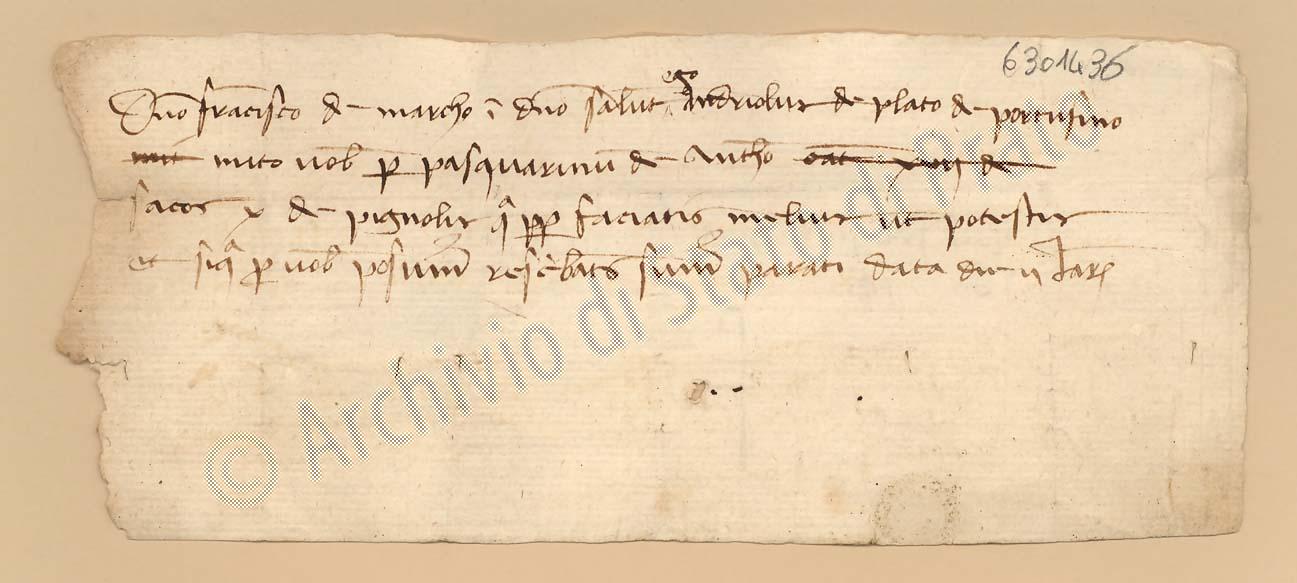 6301436
ego
Dno francisco de marcho i dno salut Andriolus de plato de portufino
mit mito vob p pasquarinu de Anthō cat xiij de
sacos x de pignolis q ppp faciatis melius ut potestis
et siqa p vob posum rescbats sum parati data die ij Jar
© Archivio di Stato di Prato